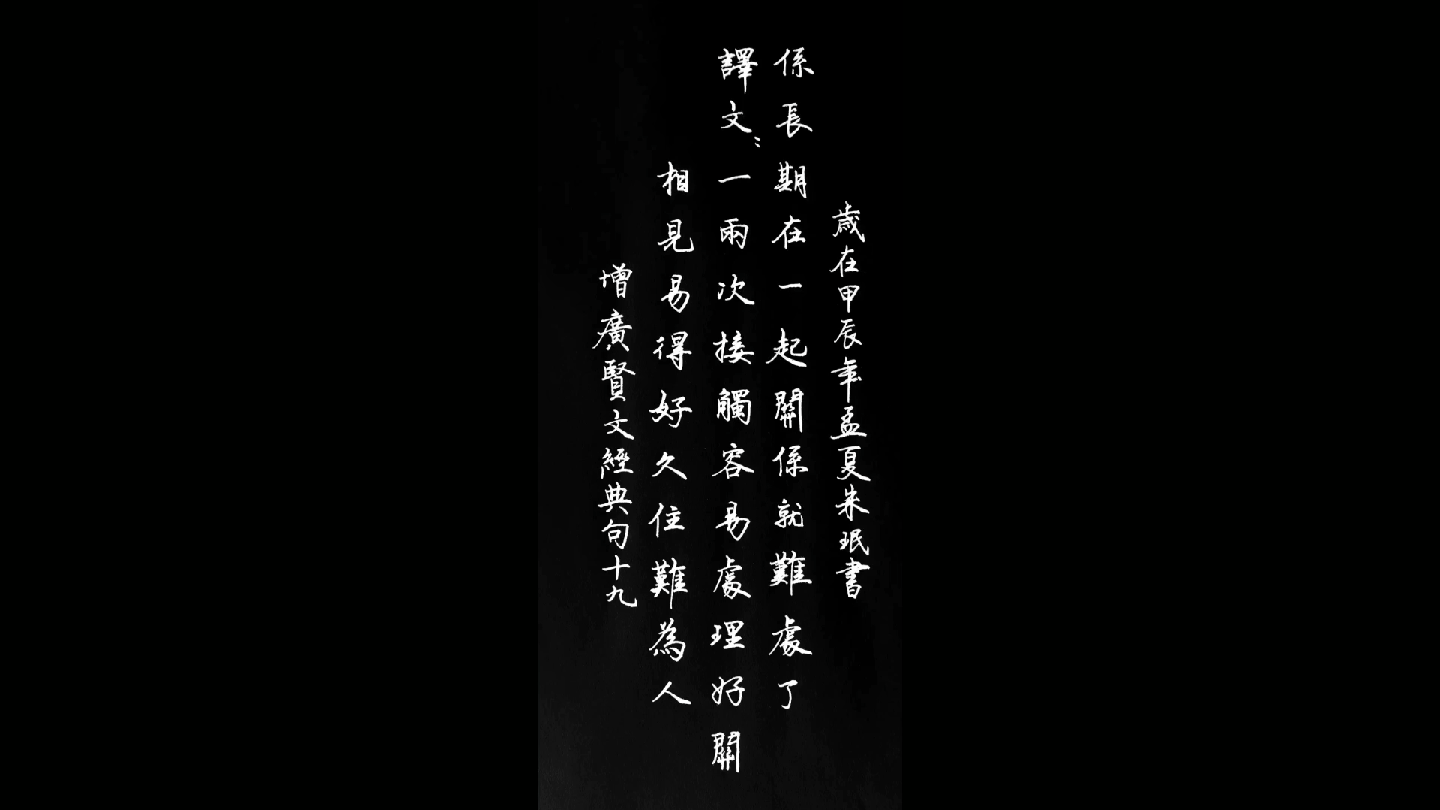 增廣賢文經典句十九
相見易得好久住難為人
譯文：一兩次接觸容易處理好關
係長期在一起關係就難處了
歲在甲辰年孟夏朱珉書